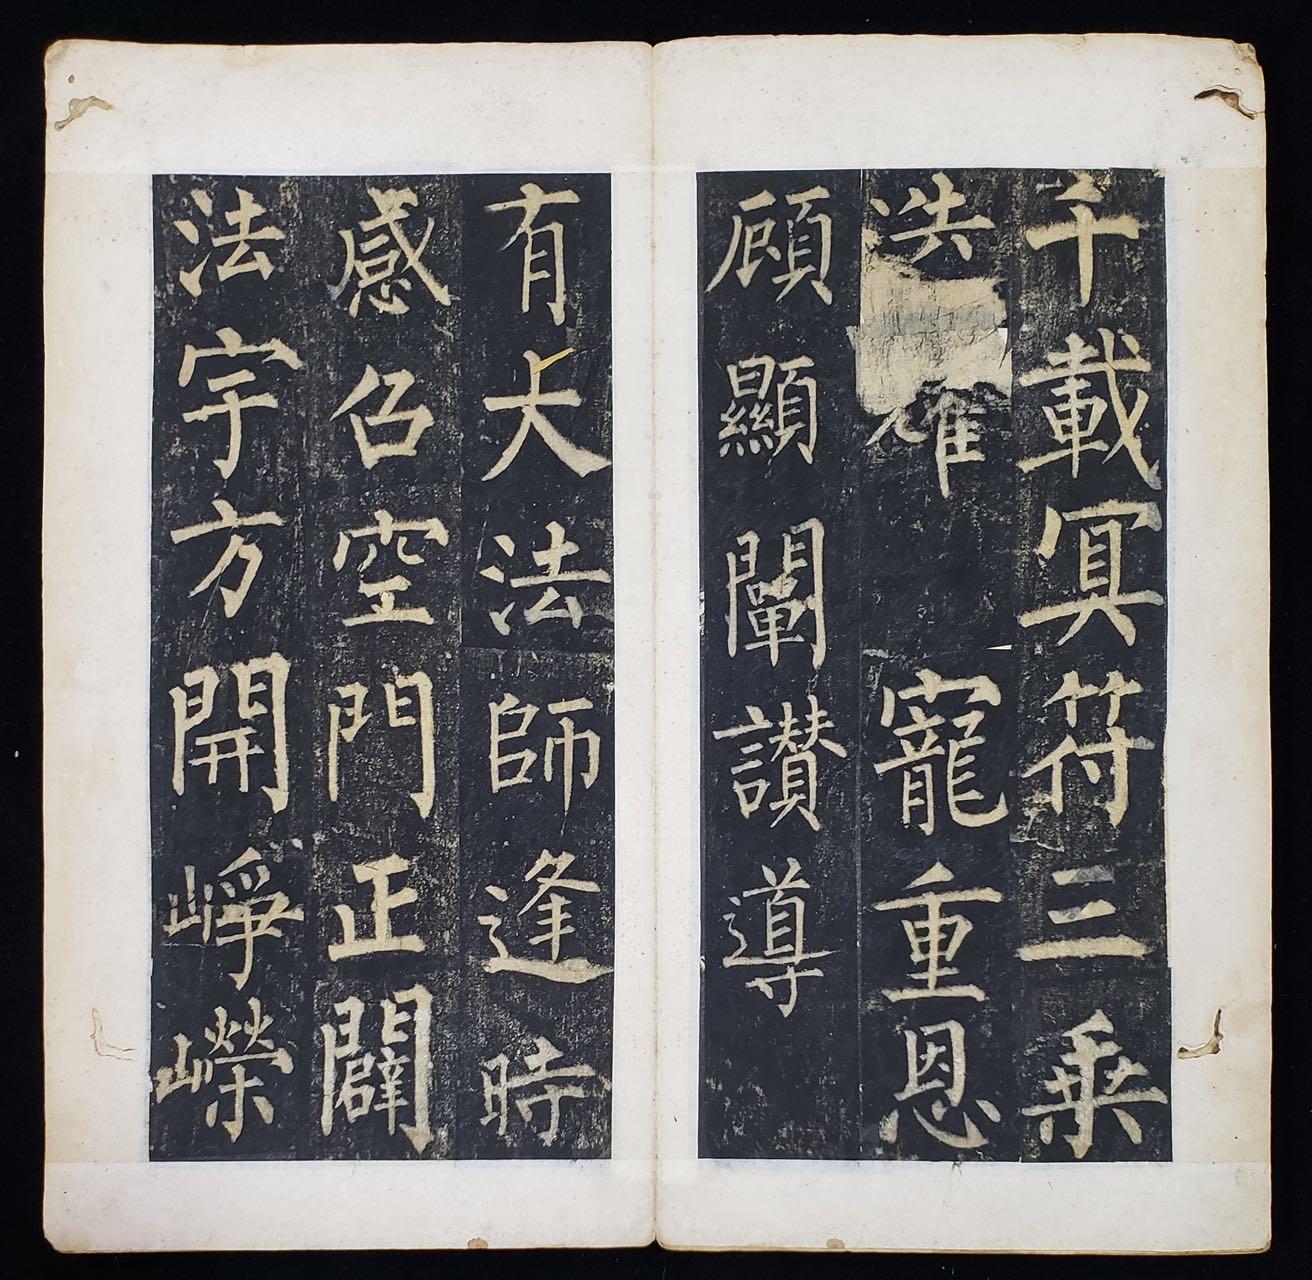 千載冥符三乘
迭耀寵重恩
顧顯闡讚導
有大法師逢時
感召空門正闢
法宇方開崢嶸